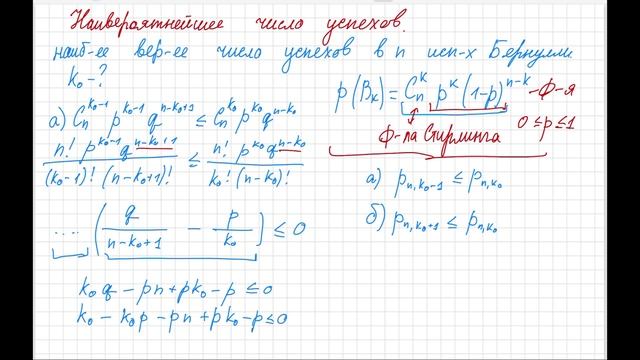 Наивероятнейшее число успехов.
наиб-ее вер-ее число успехов в n исп-х Бернулли.
k₀ - ?
p(Bₖ) = Cₙᵏ pᵏ (1-p)ⁿ⁻ᵏ - Ф-я
Ф-ла Стирлинга
0 ≤ p ≤ 1
а) Cₙ^(k₀-1) p^(k₀-1) q^(n-k₀+1) ≤ Cₙ^(k₀) p^(k₀) q^(n-k₀)
n! p^(k₀-1) q^(n-k₀+1) / (k₀-1)! (n-k₀+1)! ≤ n! p^(k₀) q^(n-k₀) / k₀! (n-k₀)!
.... (q/(n-k₀+1) - p/k₀) ≤ 0
k₀q - pn + pk₀ - p ≤ 0
k₀ - k₀p - pn + pk₀ - p ≤ 0
а) p_(n,k₀-1) ≤ p_(n,k₀)
б) p_(n,k₀+1) ≤ p_(n,k₀)